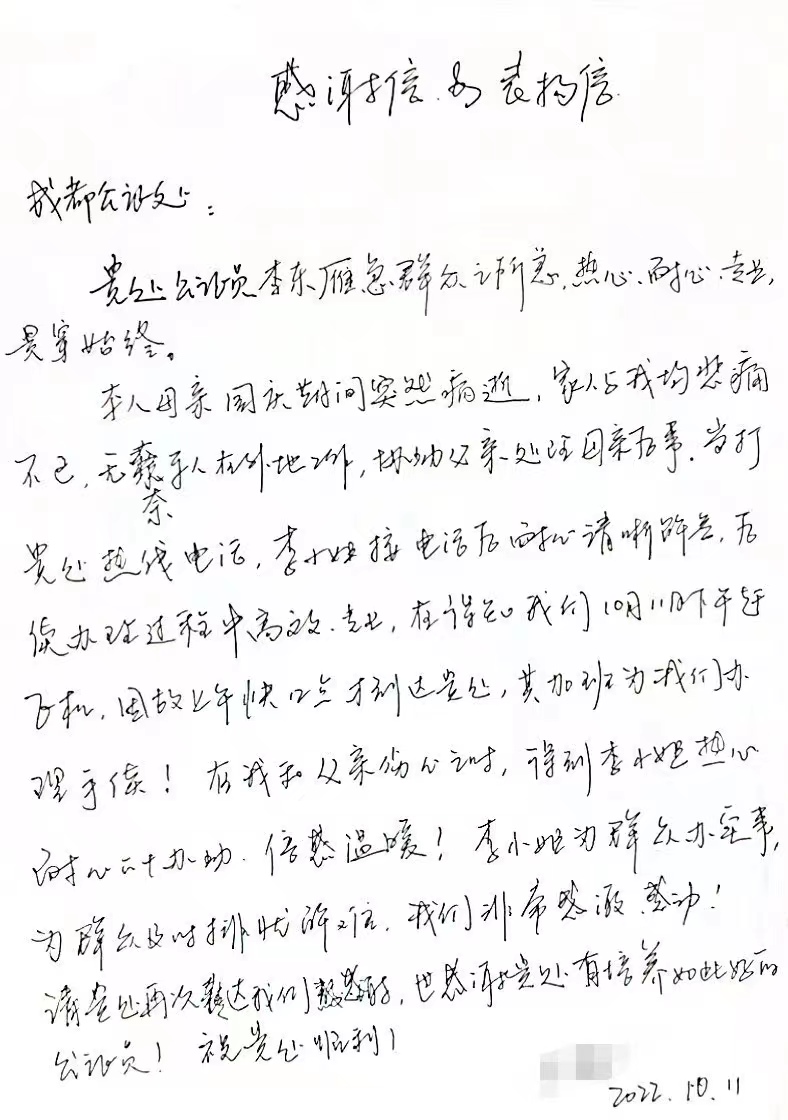 感谢信与表扬信
成都公证处：
贵处公证员李东雁急群众之所急，热心、耐心、专业，
贯穿始终。
本人母亲国庆期间突然病逝，家人与我均悲痛
不已，无奈本人在外地工作，协助父亲处理母亲后事。当打
贵处热线电话，李小姐接电话后耐心清晰解答，后
续办理过程中高效、专业，在得知我们10月11日下午赶
飞机，因故上午快12点才到达贵处，其加班为我们办
理手续！在我和父亲伤心之时，得到李小姐热心
耐心协办助，倍感温暖！李小姐为群众办实事，
为群众及时排忧解难，我们非常感激、感动！
请贵处再次转达我们感谢，也感谢贵处有培养如此好的
公证员！祝贵处顺利！
2022.10.11